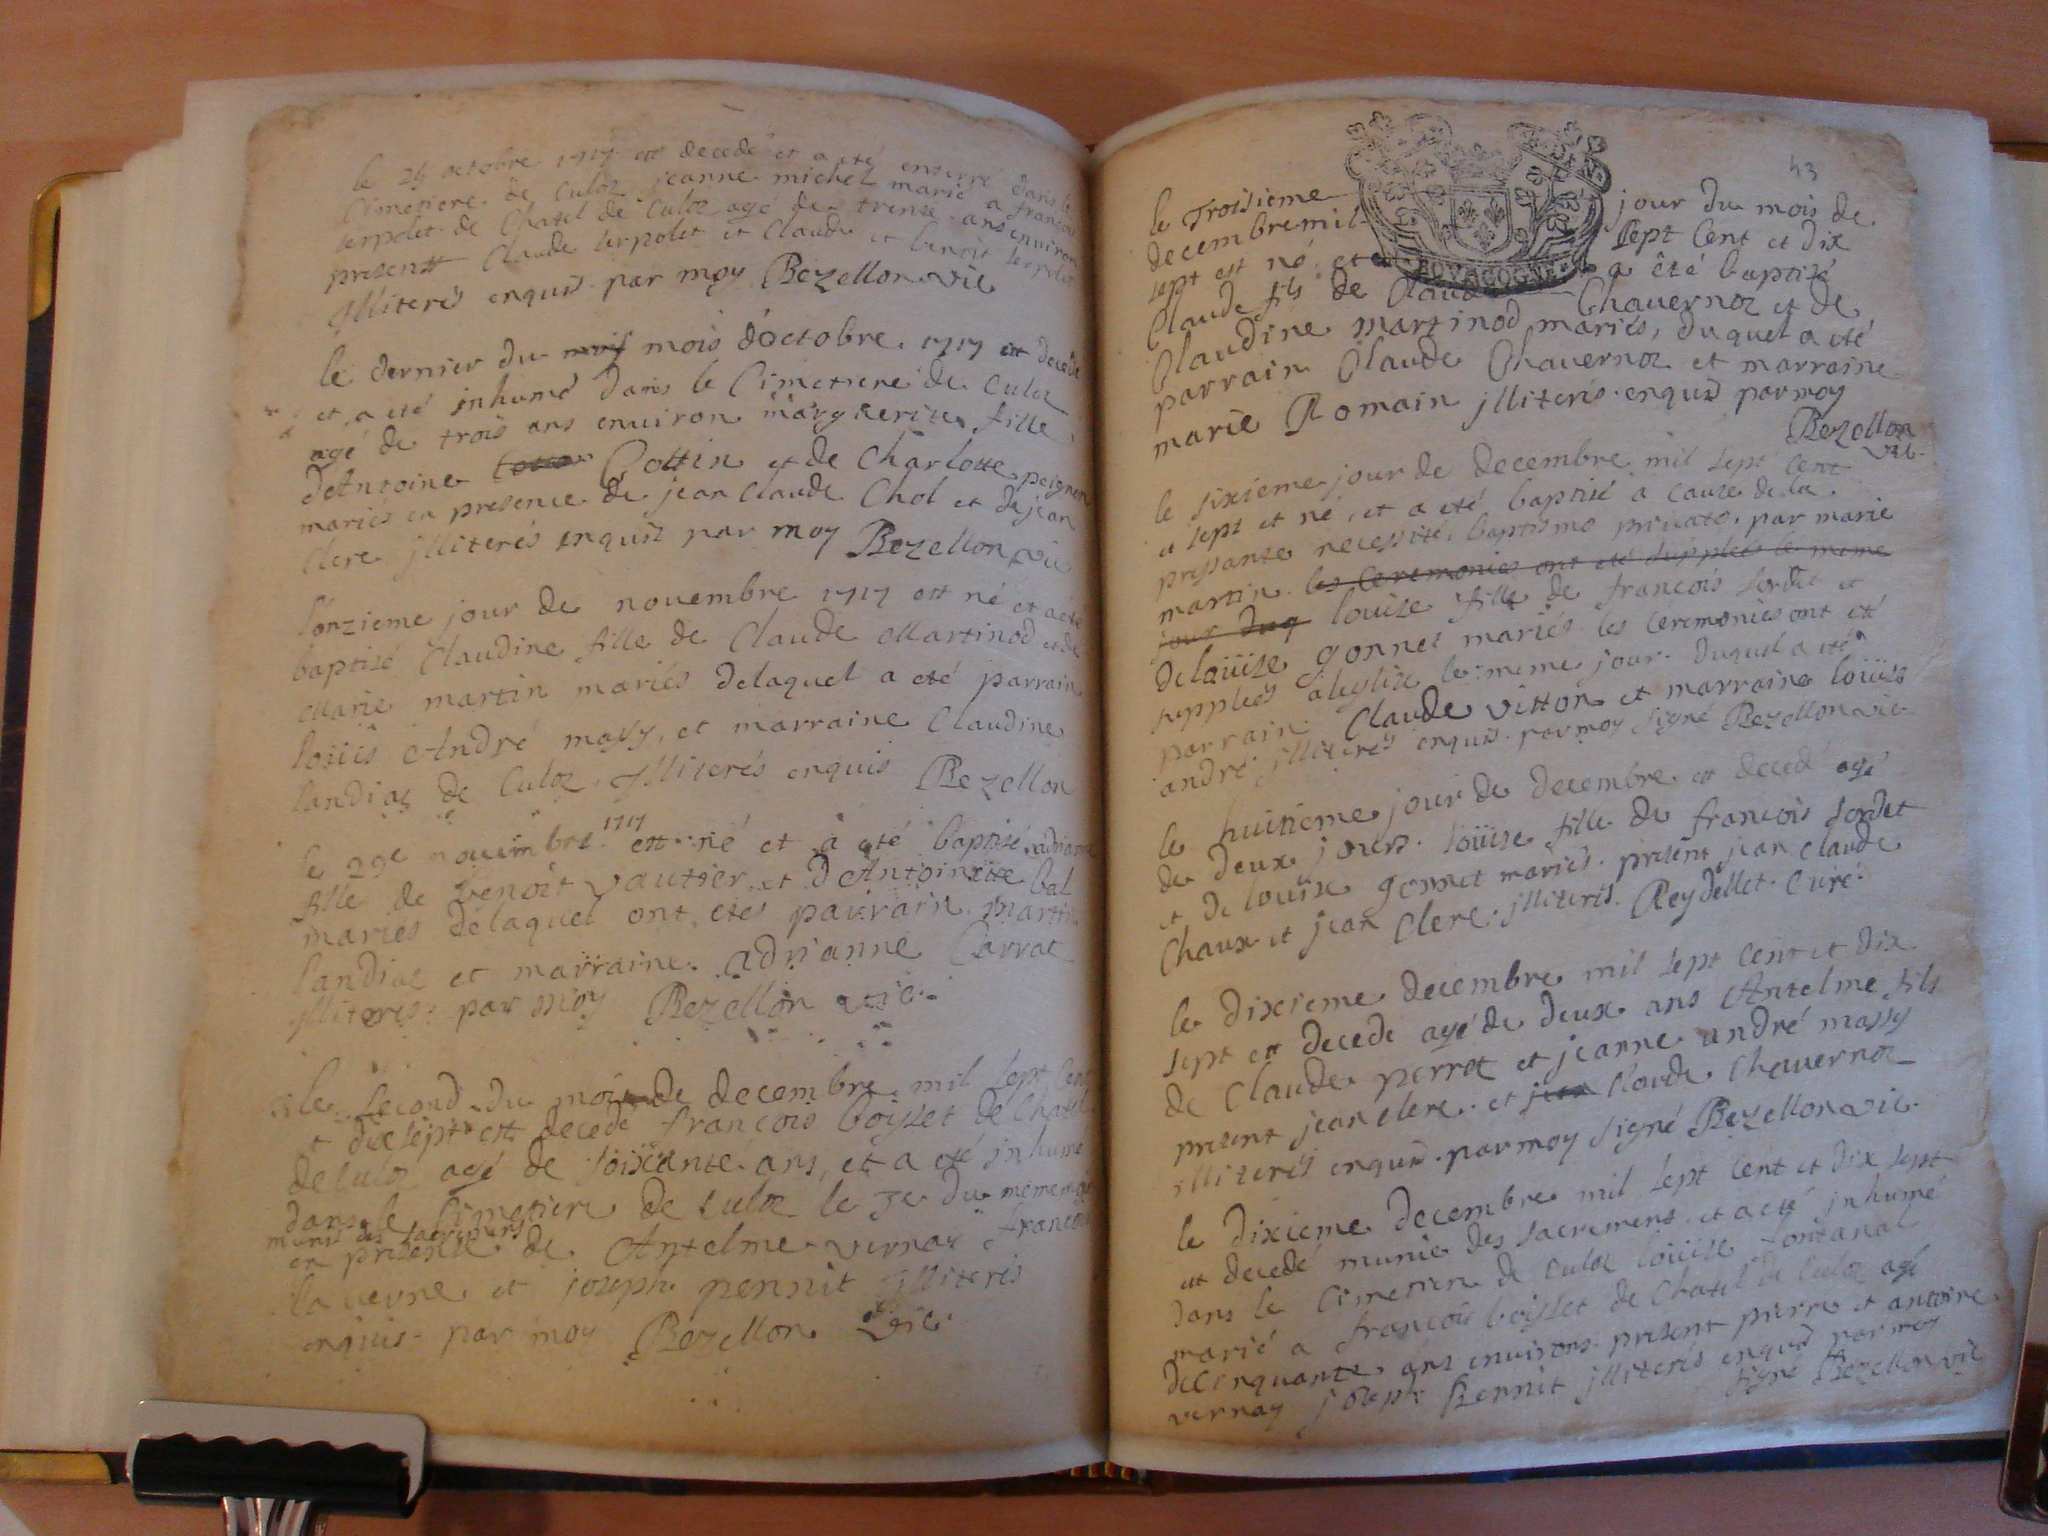 le 24 octobre 1717 est decedé et a eté enterré dans le
Cimetiere de Culoz jeanne michel marié a françois
serpolet de Chatel de Culoz agé de trense ans environ
present Claude serpolet et Claude et benoit serpolet
jlliterés enquis par moy Bezellon vic
le dernier du mois d'octobre 1717 est decedé
et a eté inhumé dans le Cimetiere de Culoz
agé de trois ans environ margueritte fille
d'Antoine Cottin et de Charlotte peignen
mariés en presence de jean Claude Chol et de jean
Clerc jlliterés enquis par moy Bezellon vic
l'onzieme jour de novembre 1717 est né et a eté
baptisé Claudine fille de Claude Martinod et de
Marie martin mariés delaquel a eté parrain
loüis André massy, et marraine Claudine
landiaz de Culoz jlliterés enquis Bezellon
le 29e novembre 1717 est né et a eté baptisé adrianne
fille de benoit vautier et d'Antoinette bal
mariés delaquel ont etés parrain martin
landiaz et marraine adrianne Carrat
jlliterés par moy Bezellon vic
le second du mois de decembre mil sept cent
et dixsept est decedé françois boisset de Chatel
de Culoz agé de soixante ans, et a eté inhumé
dans le Cimetiere de Culoz le 3e du meme mois
munis des sacremens
en presence de Antelme vernay françois
laverne et joseph pennit jlliterés
enquis par moy Bezellon vic
43
le Troisieme jour du mois de
decembre mil sept cent et dix
sept est né et a êté baptisé
BOVRGOGNE
Claude fils de Claude Chavernoz et de
Claudine martinod mariés, duquel a eté
parrain Claude Chavernoz et marraine
marie Romain jlliterés enquis par moy
Bezellon
vic
le sixieme jour de decembre mil sept cent
et sept est né, et a eté baptisé a cause de la
pressante necessité, baptismo privato, par marie
martin les Ceremonies ont eté supplées le meme
jour duq loüise fille de françois sordet et
de loüise gonnet mariés les Céremonies ont eté
supplées a l'eglise le meme jour duquel a eté
parrain Claude vitton et marraine loüise
andré jlliterés enquis par moy signé Bezellon vic
le huitieme jour de decembre est decedé agé
de deux jours loüise fille de françois sordet
et de louise gonnet mariés present jean claude
Chaux et jean Clerc jlliterés Reydellet Curé
le dixieme decembre mil sept cent et dix
sept est decedé agé de deux ans Antelme fils
de Claude perrot et jeanne andré massy
present jean clerc et jean Claude Chavernoz
jlliterés enquis par moy signé Bezellon vic
le dixieme decembre mil sept cent et dix sept
est decedé munie des sacremens et a eté inhumé
dans le Cimetiere de Culoz loüise fontanal
marié a françois boisset de Chatel de Culoz agé
de cinquante ans environs present pierre et antoine
vernay joseph Bennit jlliterés enquis par moy
signé Bezellon vic